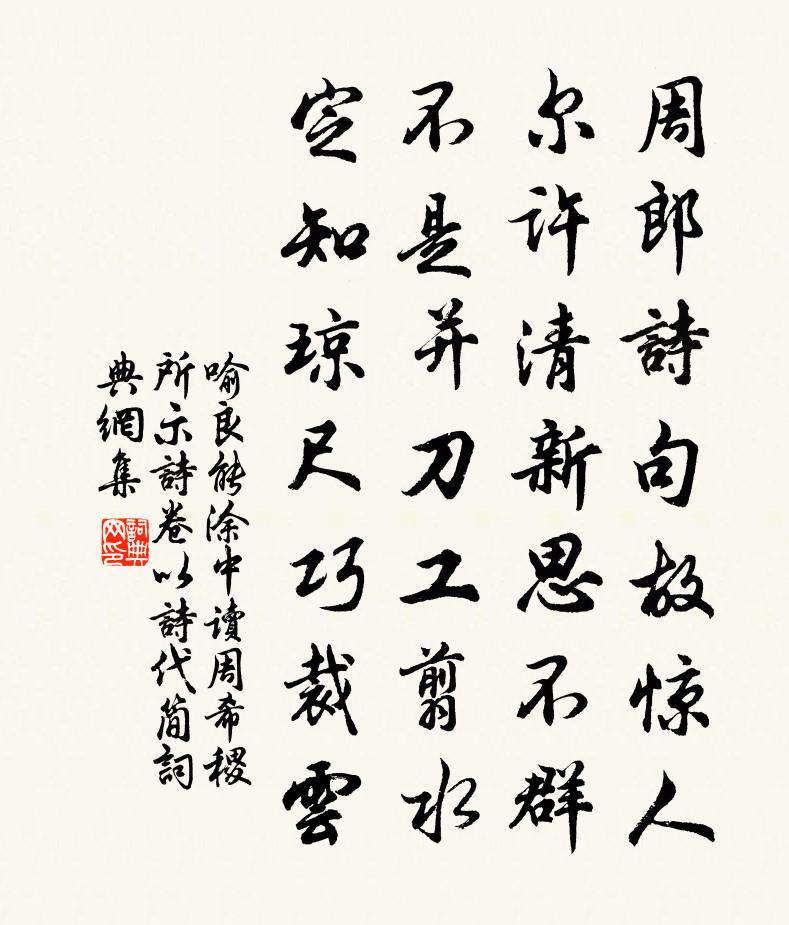 周郎詩句故惊人
尔許清新思不群
不是并刀工翦水
定知琼尺巧裁雲
喻良能涂中讀周希稷
所示詩卷以詩代简詞
典網集
詞典
网印